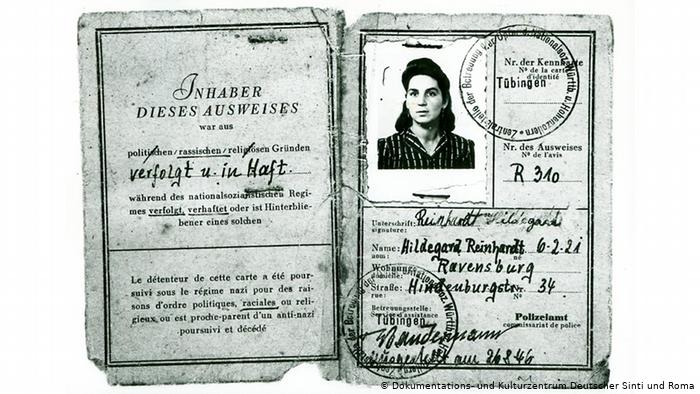 INHABER
DIESES AUSWEISES
war aus
politischen/rassischen/religiösen Gründen
verfolgt u. in Haft.
während des nationalsozialistischen Regi-
mes verfolgt, verhaftet oder ist Hinterblie-
bener eines solchen
Le détenteur de cette carte a été pour-
suivi sous le régime nazi pour des rai-
sons d'ordre politiques, raciales ou reli-
gieux, ou est proche-parent d'un anti-nazi
poursuivi et décédé
Nr. der Kennkarte
Nº de la carte
d'identité
Tübingen
Nr. des Ausweises
Nº de l'avis
R 310
Unterschrift: Reinhardt Hildegard
signature:
Name: Hildegard Reinhardt 6-2-21
nom: né
Wohnung: Ravensburg
Straße: Hindenburgstr. Nº 34
rue:
Betreuungsstelle:
Service d'assistance
Tübingen
Polizeiamt
commissariat de police
© Dokumentations- und Kulturzentrum Deutscher Sinti und Roma